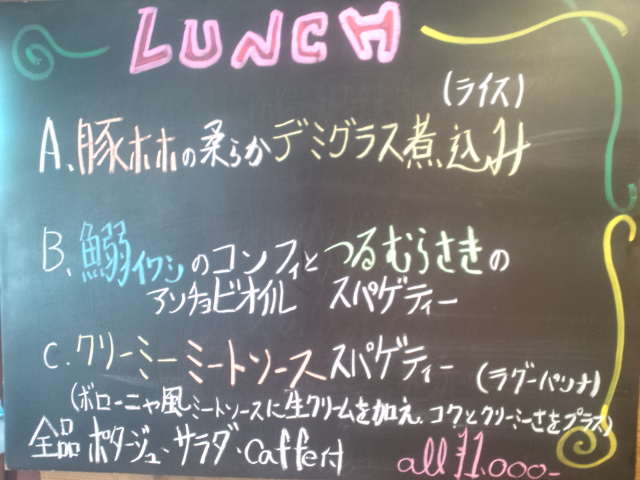 LUNCH
(ライス)
A、豚ホホの柔らかデミグラス煮込み
B、鰯イワシのコンフィとつるむらさきの
アンチョビオイル スパゲティー
C、クリーミーミートソーススパゲティー (ラグーパンナ)
(ボローニャ風ミートソースに生クリームを加え、コクとクリーミーさをプラス)
全品 ポタージュ・サラダ・Caffe付
all ¥1.000-